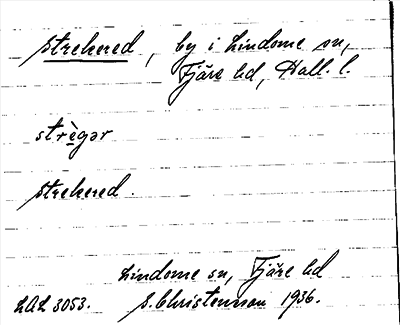 Strekered, by i Lindome sn,
Fjäre hd, Hall. l.
strègər
Strekered.
Lindome sn, Fjäre hd
LAL 3053. S. Christenson 1936.